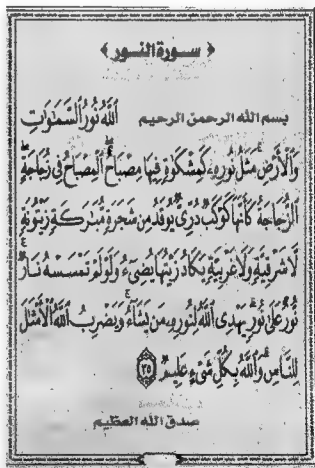 ﴿ سورة النور ﴾
بسم الله الرحمن الرحيم ٱللَّهُ نُورُ ٱلسَّمَٰوَٰتِ
وَٱلْأَرْضِ مَثَلُ نُورِهِۦ كَمِشْكَوٰةٍ فِيهَا مِصْبَاحٌ ٱلْمِصْبَاحُ فِى زُجَاجَةٍ
ٱلزُّجَاجَةُ كَأَنَّهَا كَوْكَبٌ دُرِّىٌّ يُوقَدُ مِن شَجَرَةٍ مُّبَٰرَكَةٍ زَيْتُونَةٍ
لَّا شَرْقِيَّةٍ وَلَا غَرْبِيَّةٍ يَكَادُ زَيْتُهَا يُضِىٓءُ وَلَوْ لَمْ تَمْسَسْهُ نَارٌ
نُّورٌ عَلَىٰ نُورٍ يَهْدِى ٱللَّهُ لِنُورِهِۦ مَن يَشَآءُ وَيَضْرِبُ ٱللَّهُ ٱلْأَمْثَٰلَ
لِلنَّاسِ وَٱللَّهُ بِكُلِّ شَىْءٍ عَلِيمٌ ٣٥
صدق الله العظيم